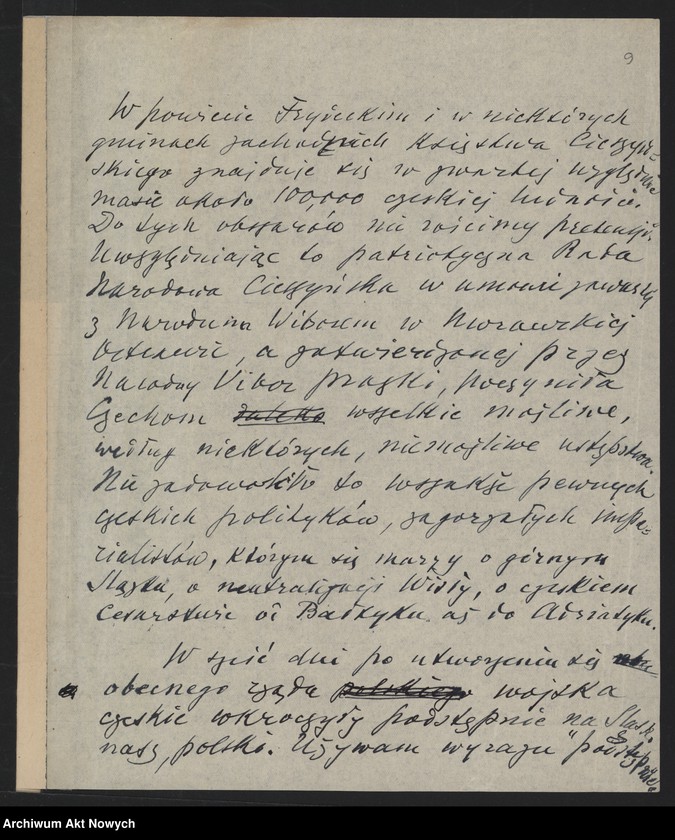 9
W powiecie Frydeckim i w niektórych
gminach zachodnich Księstwa Cieszyń-
skiego znajduje się w zwartej względnie
masie około 100,000 czeskiej ludności.
Do tych obszarów nie rościmy pretensji.
Uwzględniając to patriotyczna Rada
Narodowa Cieszyńska w umowie zawartej
z Narodnim Wiborem w Morawskiej
Ostrawie, a zatwierdzonej przez
Narodny Vibor praski, poczyniła
Czechom wszelkie możliwe,
według niektórych, niemożliwe ustępstwa.
Nie zadowoliło to wszakże pewnych
czeskich polityków, zagorzałych impe-
rialistów, którym się marzy o górnym
Śląsku, o neutralizacji Wisły, o czeskiem
Cesarstwie od Bałtyku aż do Adriatyku.
W sześć dni po utworzeniu się
obecnego rządu polskiego wojska
czeskie wkroczyły podstępnie na Śląsk
nasz, polski. Używam wyrazu "podstępnie
Archiwum Akt Nowych